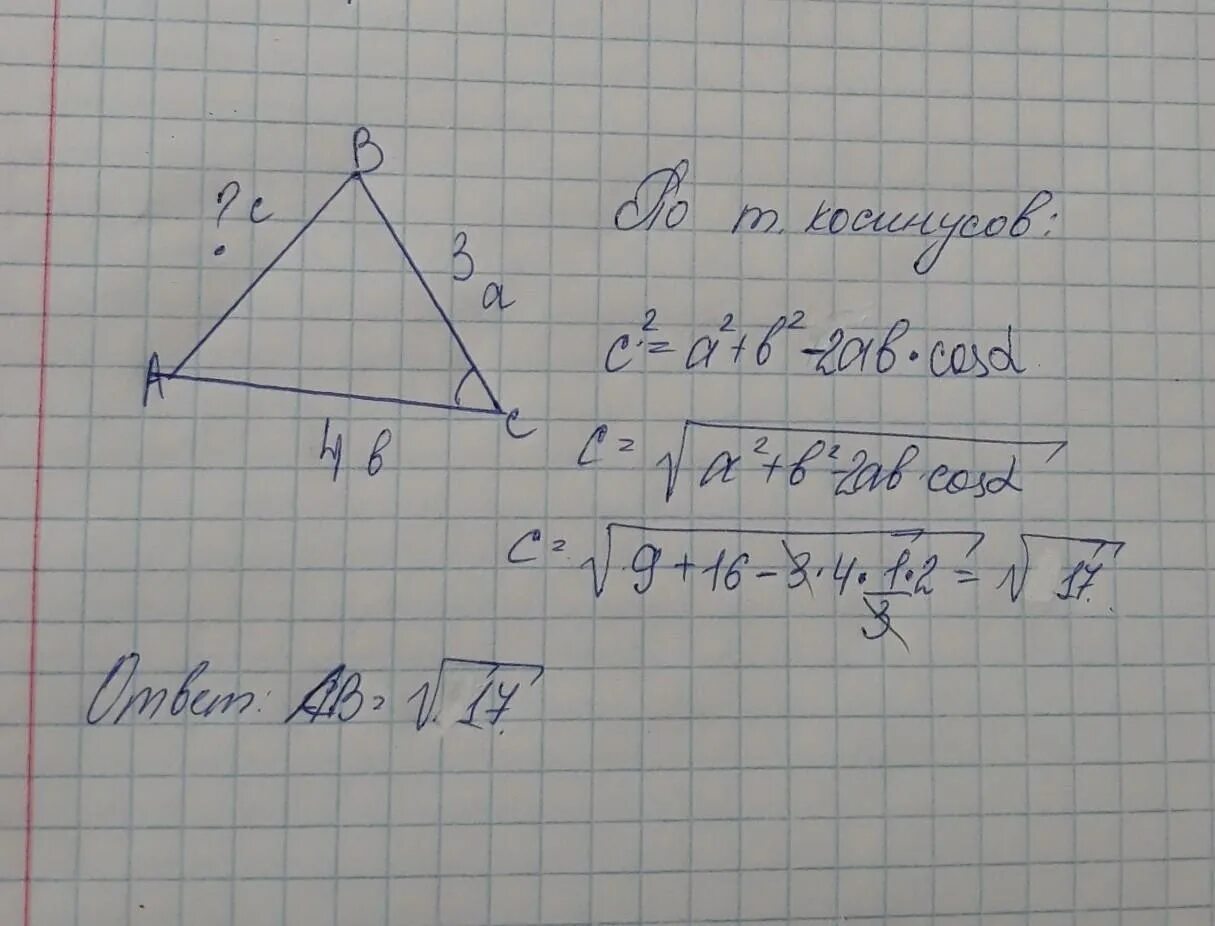 B
? c
3
a
A
C
4 в
По т. косинусов:
c² = a² + в² - 2aв · cosα
c = √(a² + в² - 2aв · cosα)
c = √(9 + 16 - 3 · 4 · 1/3 · 2) = √17
Ответ: AB = √17